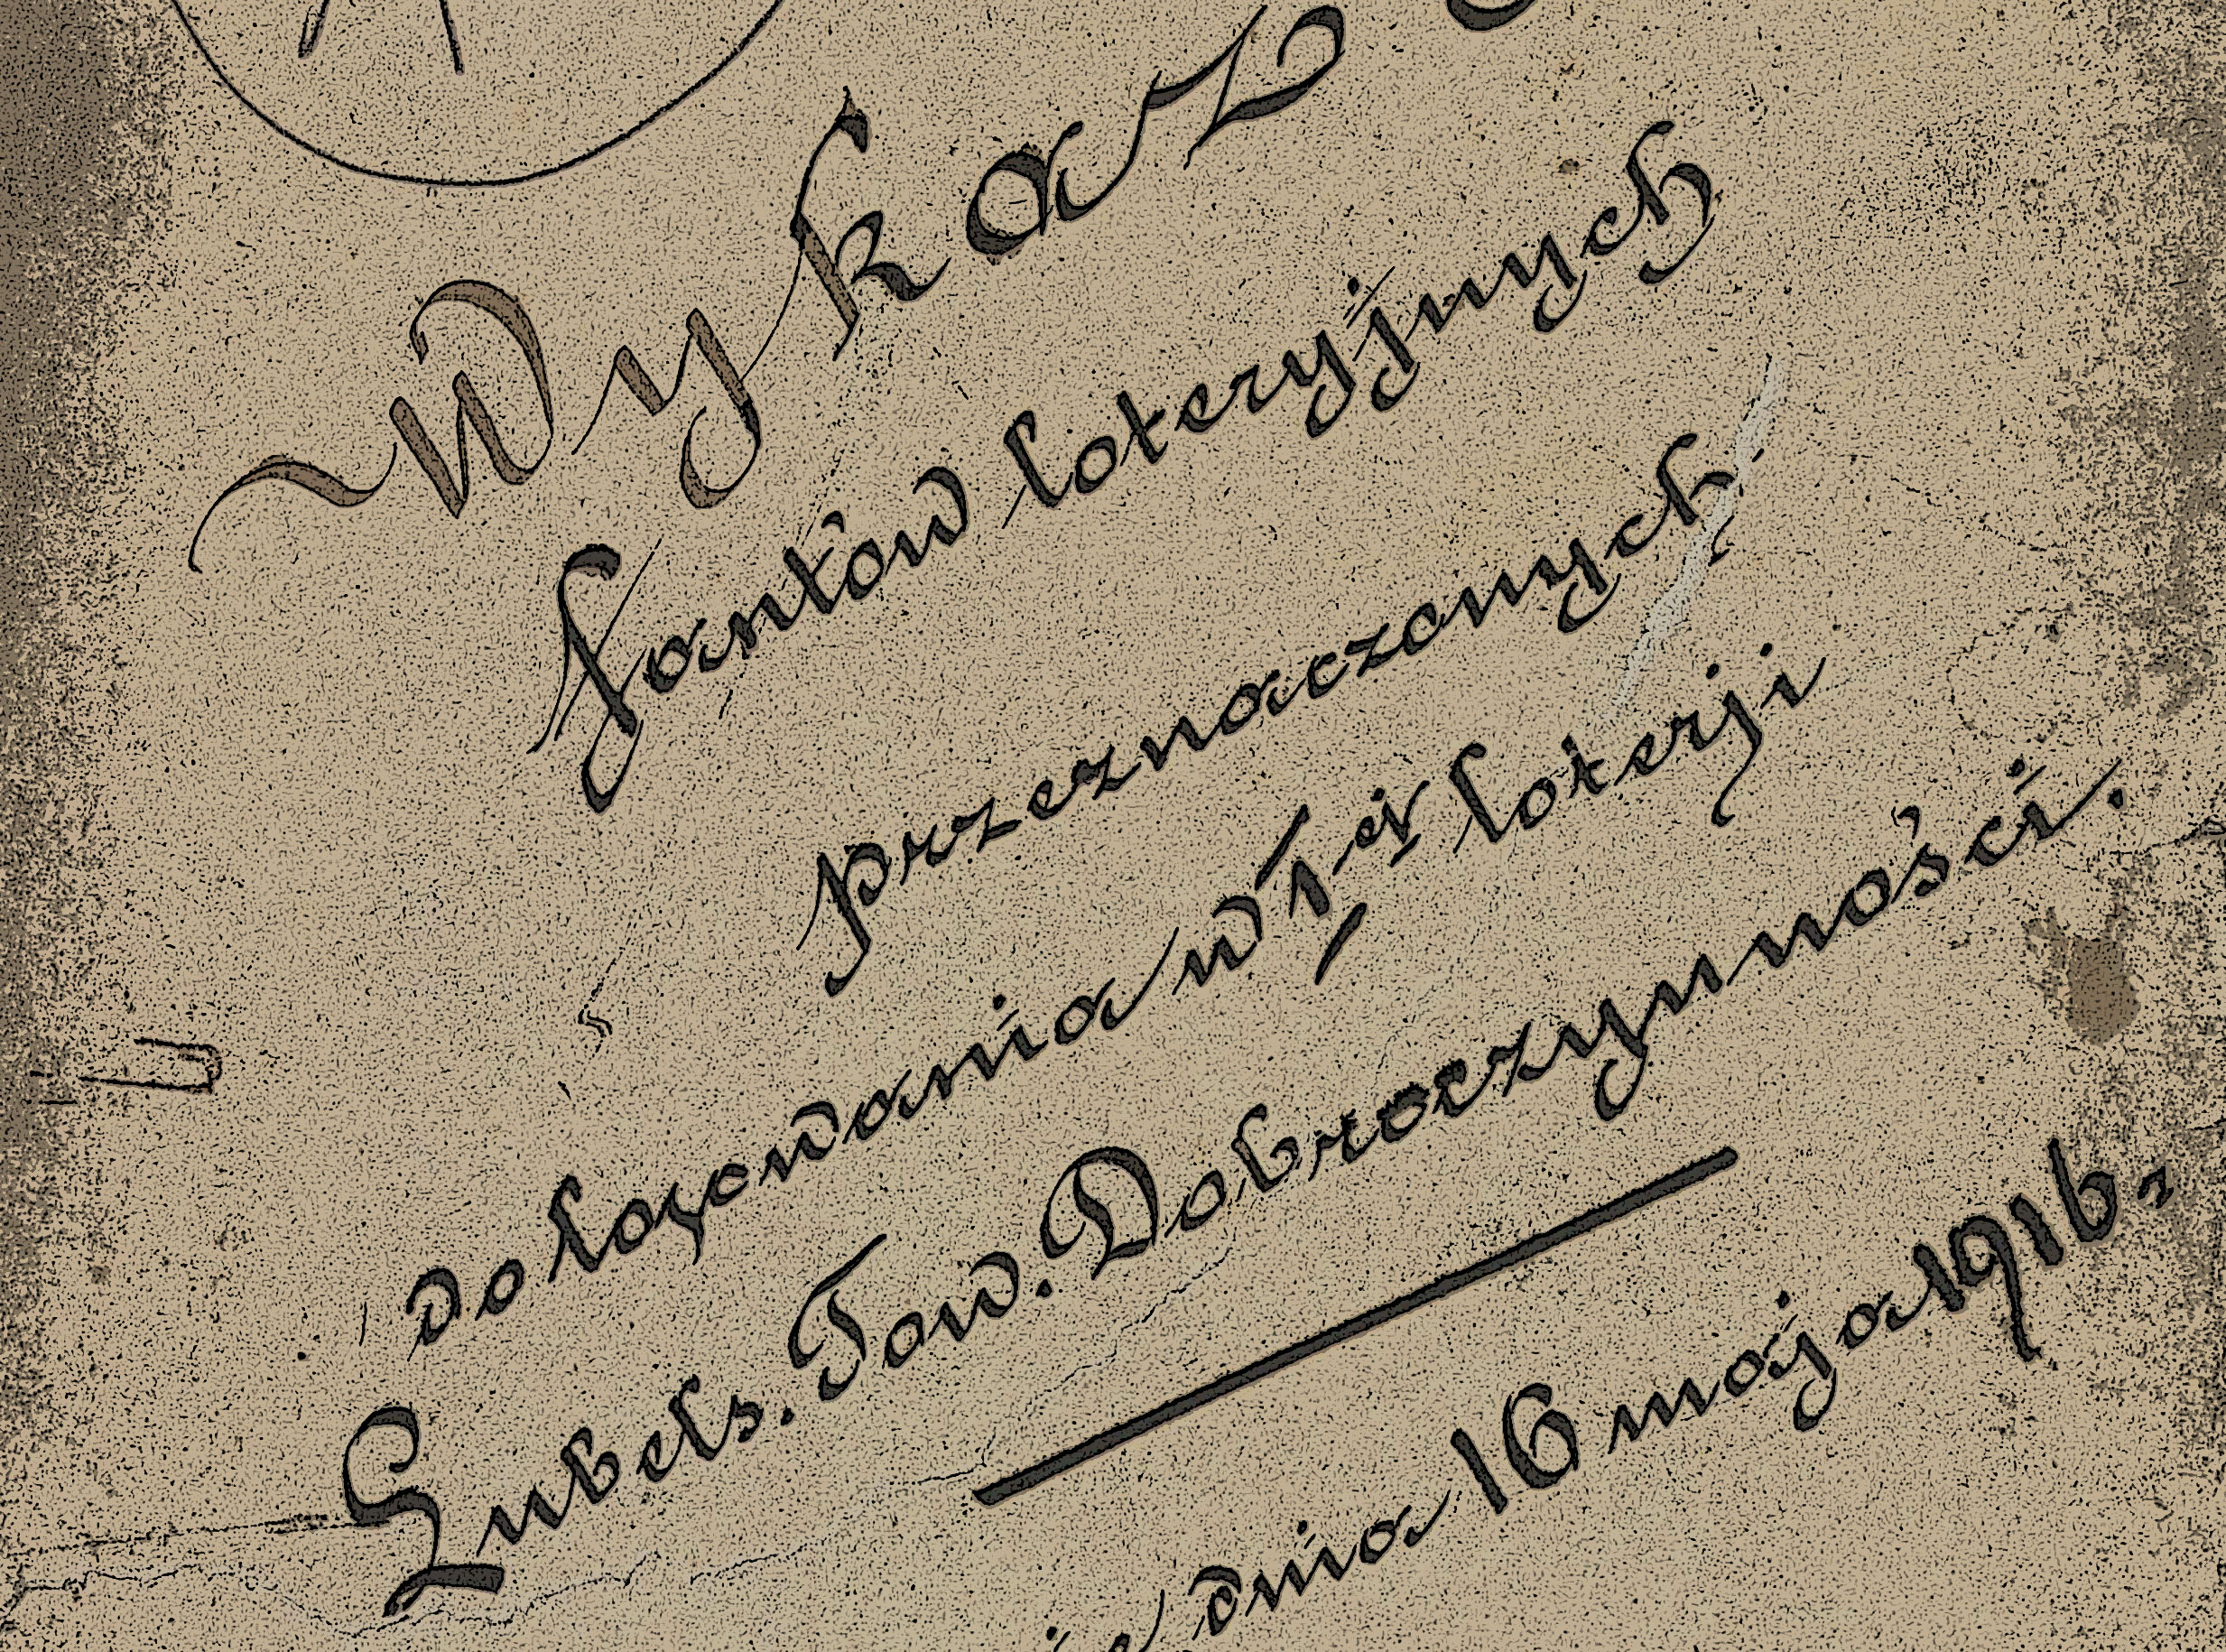 Wykaz
fantów loteryjnych
przeznaczonych
do losowania w 1ej loterji
Lubels. Tow. Dobroczynności.
dnia 16 maja 1916 r